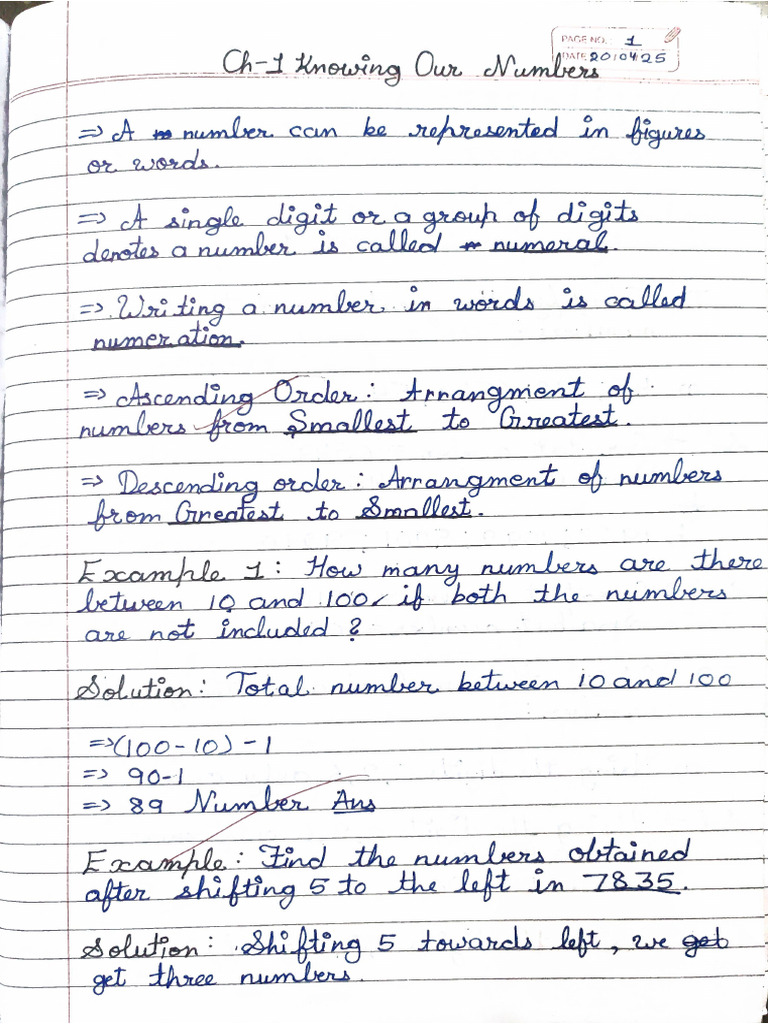 PAGE NO.: 1
DATE: 20/04/25
Ch-1 Knowing Our Numbers
⇒ A number can be represented in figures
or words.
⇒ A single digit or a group of digits
denotes a number is called numeral.
⇒ Writing a number in words is called
numeration.
⇒ Ascending Order: Arrangment of
numbers from Smallest to Greatest.
⇒ Descending order: Arrangment of numbers
from Greatest to Smallest.
Example 1: How many numbers are there
between 10 and 100, if both the numbers
are not included?
Solution: Total number between 10 and 100
⇒ (100-10) - 1
⇒ 90-1
⇒ 89 Number Ans
Example: Find the numbers obtained
after shifting 5 to the left in 7835.
Solution: Shifting 5 towards left, we get
get three numbers.